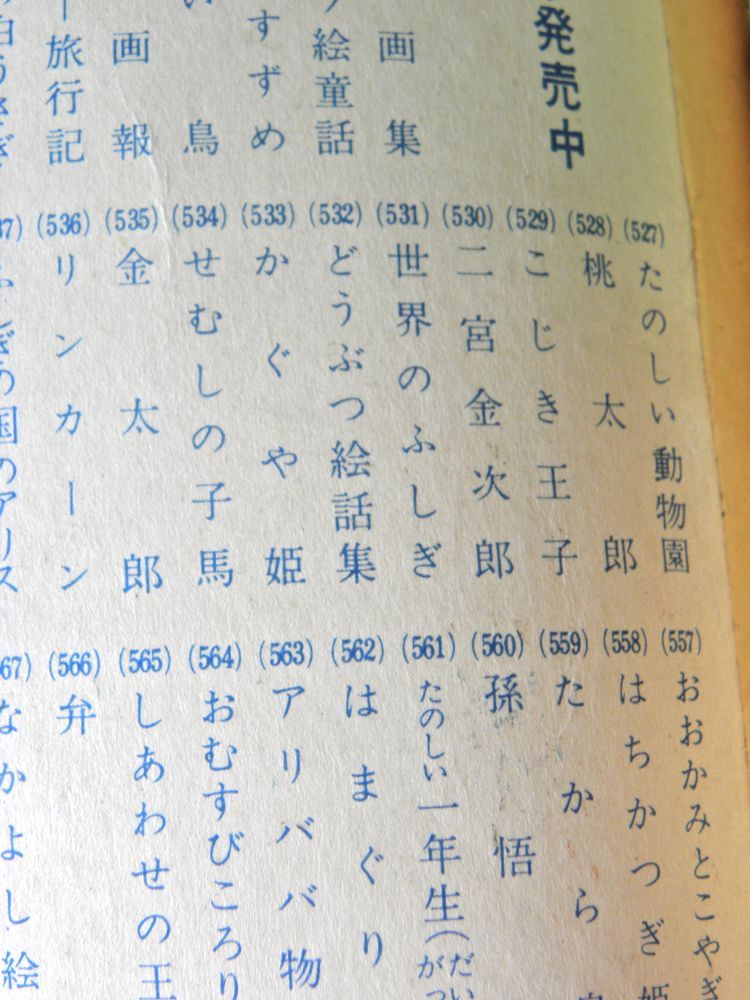 発売中
画集
絵童話
すずめ
鳥
画報
ー旅行記
白うさぎ
(527) たのしい動物園
(528) 桃太郎
(529) こじき王子
(530) 二宮金次郎
(531) 世界のふしぎ
(532) どうぶつ絵話集
(533) かぐや姫
(534) せむしの子馬
(535) 金太郎
(536) リンカーン
37) ふしぎの国のアリス
(557) おおかみとこやぎ
(558) はちかつぎ姫
(559) たから
(560) 孫悟
(561) たのしい一年生(だい
がっ
(562) はまぐり
(563) アリババ物
(564) おむすびころり
(565) しあわせの王
(566) 弁
67) なかよし絵